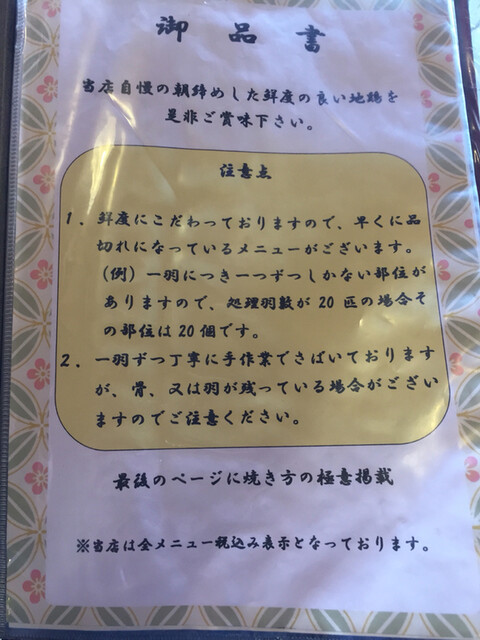 御品書
当店自慢の朝締めした鮮度の良い地鶏を
是非ご賞味下さい。
注意点
1．鮮度にこだわっておりますので、早くに品
切れになっているメニューがございます。
（例）一羽につき一つずつしかない部位が
ありますので、処理羽数が 20 匹の場合そ
の部位は 20 個です。
2．一羽ずつ丁寧に手作業でさばいております
が、骨、又は羽が残っている場合がござい
ますのでご注意ください。
最後のページに焼き方の極意掲載
※当店は全メニュー税込み表示となっております。